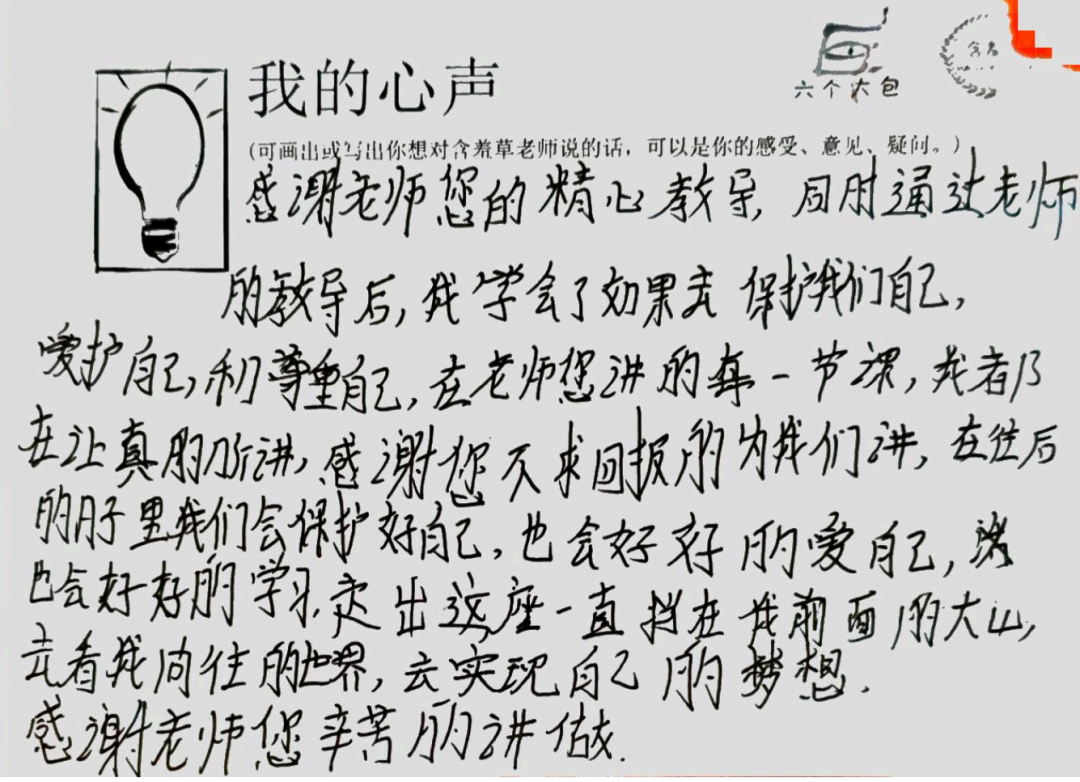 我的心声
六个大包
(可画出或写出你想对含羞草老师说的话，可以是你的感受、意见、疑问。)
感谢老师您的精心教导，同时通过老师
的教导后，我学会了如果去保护我们自己，
爱护自己，和尊重自己，在老师您讲的每一节课，我都
在认真的听讲，感谢您不求回报的为我们讲，在往后
的日子里我们会保护好自己，也会好好的爱自己，
也会好好的学习，走出这座一直挡在我前面的大山，
去看我向往的世界，去实现自己的梦想.
感谢老师您辛苦的讲做.